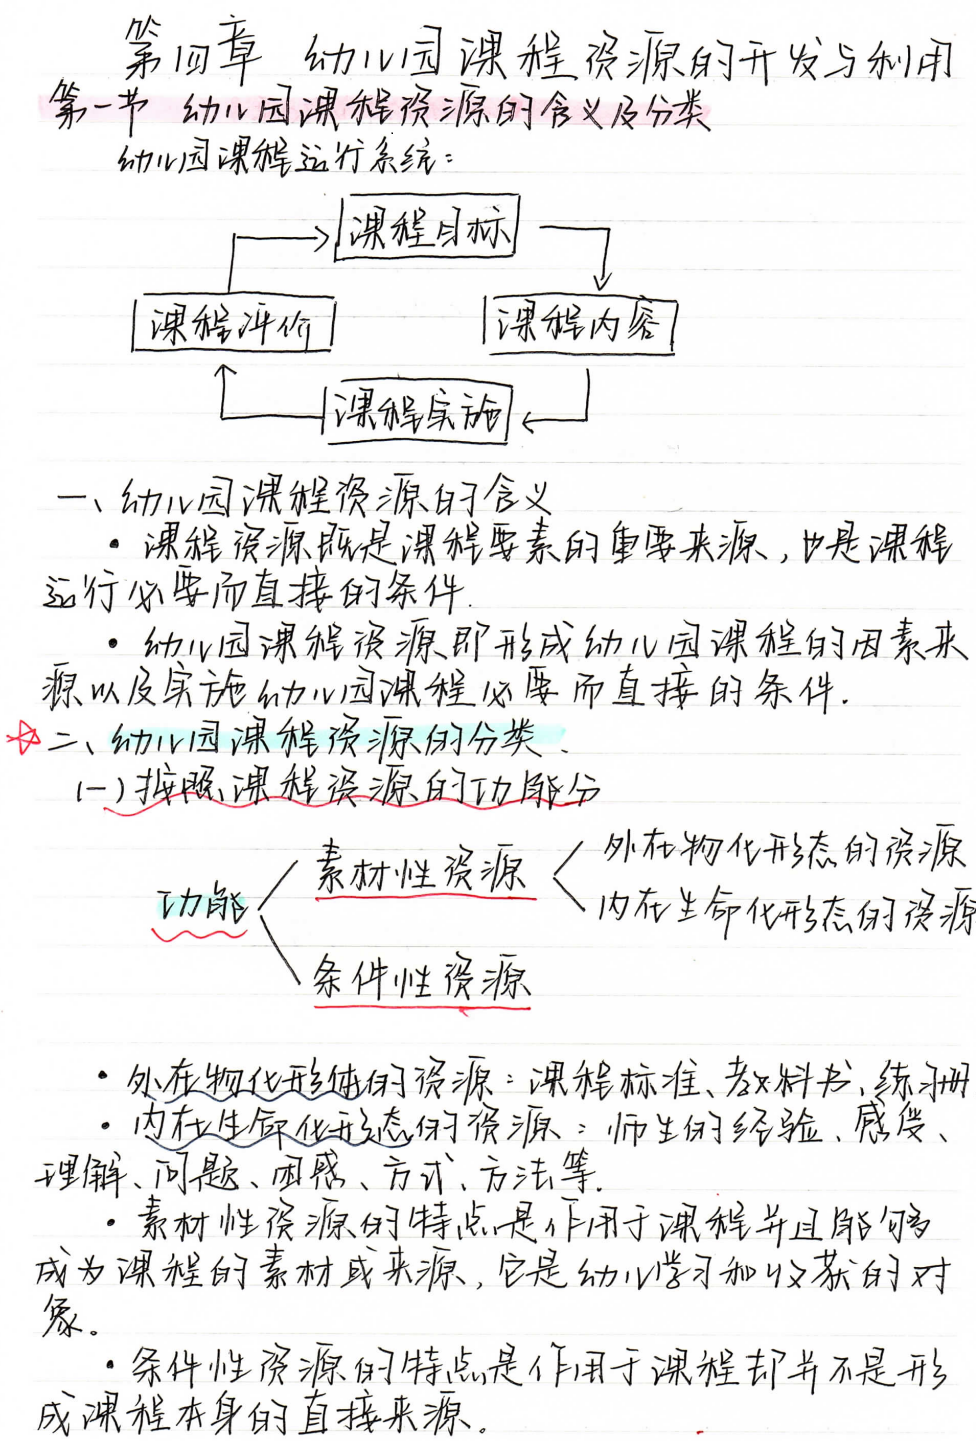 第四章 幼儿园课程资源的开发与利用
第一节 幼儿园课程资源的含义及分类
幼儿园课程运行系统:
课程目标
课程评价 课程内容
课程实施
一、幼儿园课程资源的含义
• 课程资源既是课程要素的重要来源,也是课程
运行必要而直接的条件.
• 幼儿园课程资源即形成幼儿园课程的因素来
源以及实施幼儿园课程必要而直接的条件.
☆二、幼儿园课程资源的分类.
(一)按照课程资源的功能分
外在物化形态的资源
素材性资源
功能
内在生命化形态的资源
条件性资源
• 外在物化形体的资源:课程标准、教科书、练习册
• 内在生命化形态的资源:师生的经验、感受、
理解、问题、困惑、方式、方法等.
• 素材性资源的特点是作用于课程并且能够
成为课程的素材或来源,它是幼儿学习和收获的对
象。
• 条件性资源的特点是作用于课程却并不是形
成课程本身的直接来源。